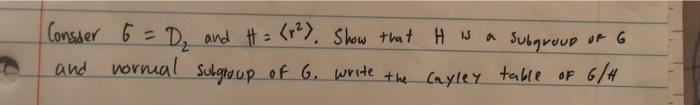 Consider G = D₂ and H = ⟨r²⟩. Show that H is a subgroup of G
and normal subgroup of G. write the Cayley table of G/H